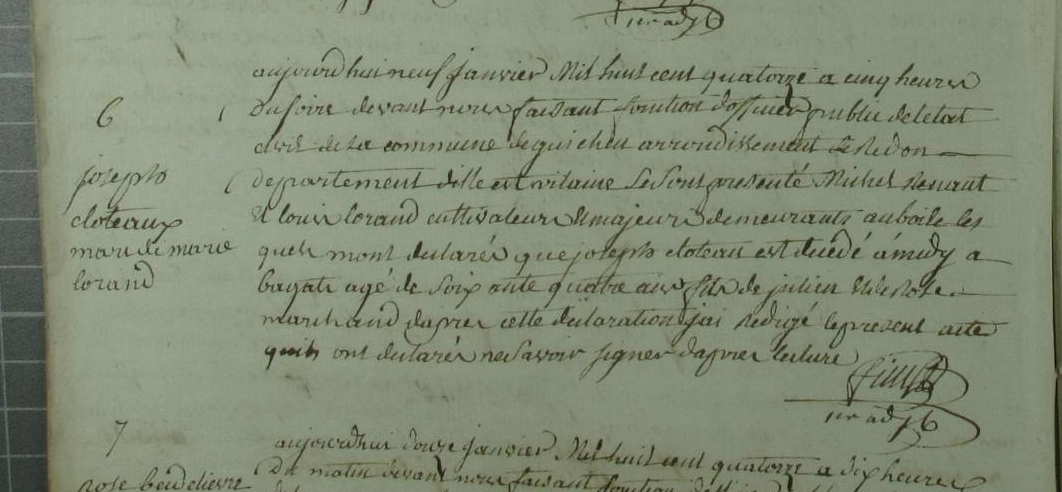 aujourdhui neuf janvier Mil huit cent quatorze a cinq heures
6
du soire devant nous faisant fonction dofficier public de letat
civil de la commune de guichen arrondissement de Redon
joseph
departement dille et vilaine se sont presenté Michel Renaut
cloteaux
et louis lorand cultivateurs et majeurs demeurants au boile les
mari de marie
quels mont declarés que joseph cloteau est décédé à midy a
lorand
bagati agé de soixante quatre ans fils de julien et de Rose
marchand dapres cette declaration jai redigé le present acte
quils ont declarés ne savoir signer dapres lecture
7
aujourdhui douze janvier Mil huit cent quatorze a dix heures
du matin devant nous faisant fonction
rose